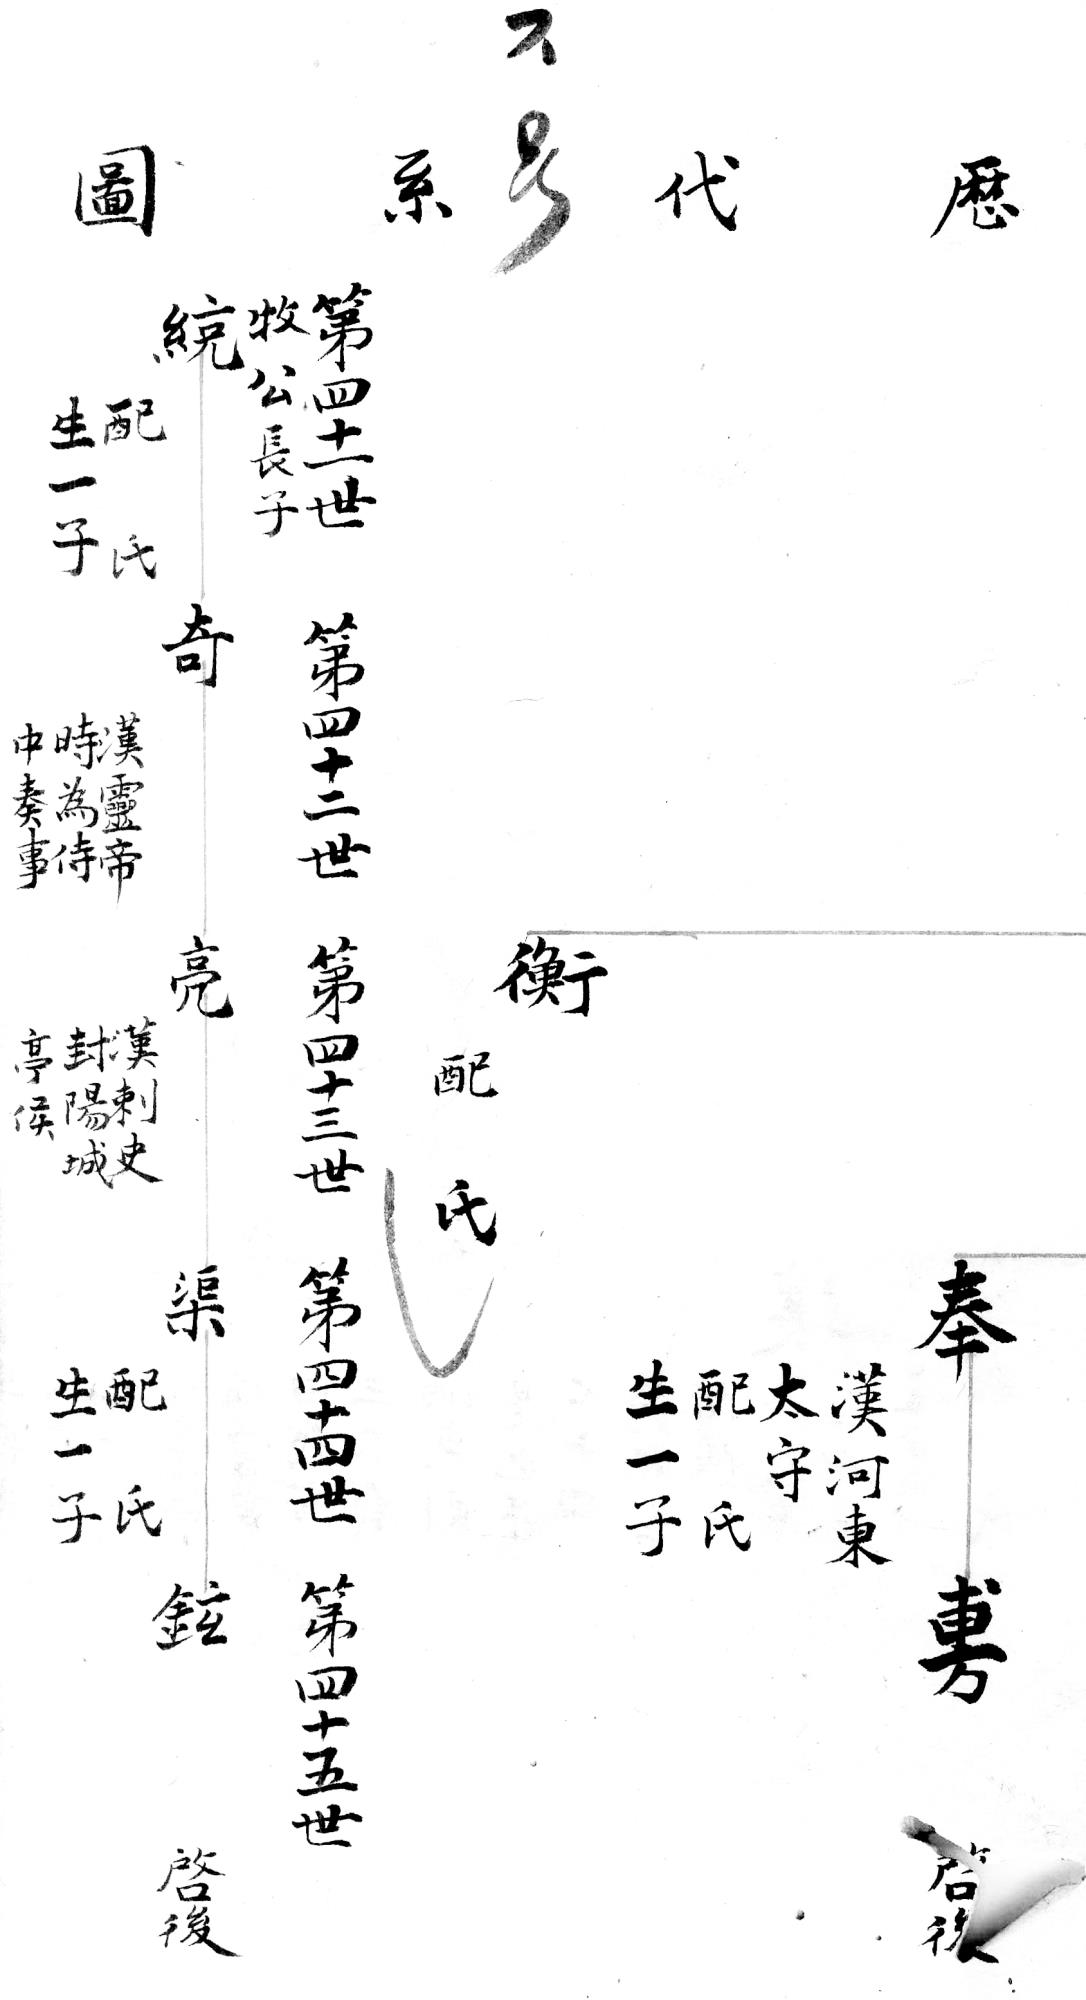 歷代系圖
奉
漢河東
太守
配氏
生一子
啓後
衡
配氏
第四十一世
牧公長子
統
配氏
生一子
第四十二世
奇
漢靈帝
時為侍
中奏事
第四十三世
亮
漢刺史
封陽城
亭侯
第四十四世
渠
配氏
生一子
第四十五世
鉉
啓後